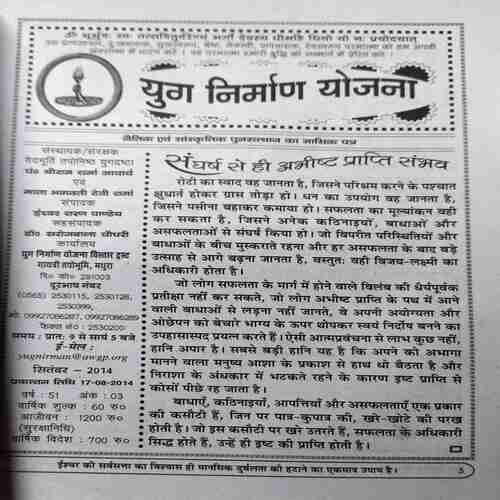 ॐ भूर्भुवः स्वः तत्सवितुर्वरेण्यं भर्गो देवस्य धीमहि धियो यो नः प्रचोदयात्
उस प्राणस्वरूप, दुःखनाशक, सुखस्वरूप, श्रेष्ठ, तेजस्वी, पापनाशक, देवस्वरूप परमात्मा को हम अपनी
अंतरात्मा में धारण करें। वह परमात्मा हमारी बुद्धि को सन्मार्ग में प्रेरित करे।
युग निर्माण योजना
नैतिक एवं सांस्कृतिक पुनरुत्थान का मासिक पत्र
संस्थापक/संरक्षक
वेदमूर्ति तपोनिष्ठ युगद्रष्टा
पं० श्रीराम शर्मा आचार्य
एवं
माता भगवती देवी शर्मा
संपादक
ईश्वर शरण पाण्डेय
सहसंपादक
डॉ० सरोजबाला चौधरी
कार्यालय
युग निर्माण योजना विस्तार ट्रस्ट
गायत्री तपोभूमि, मथुरा
पि० को० 281003
दूरभाष नंबर
(0565) 2530115, 2530128,
2530399,
मो. 09927086287, 09927086289
फैक्स नं० : 2530200
समय : प्रातः 9 से सायं 5 बजे
ई-मेल :
yugnirman@awgp.org
सितंबर - 2014
प्रकाशन तिथि 17-08-2014
वर्ष : 51 अंक : 03
वार्षिक शुल्क : 60 रु०
आजीवन : 1200 रु०
(सुरक्षानिधि)
वार्षिक विदेश : 700 रु०
संघर्ष से ही अभीष्ट प्राप्ति संभव
रोटी का स्वाद वह जानता है, जिसने परिश्रम करने के पश्चात
क्षुधार्त होकर ग्रास तोड़ा हो। धन का उपयोग वह जानता है,
जिसने पसीना बहाकर कमाया हो। सफलता का मूल्यांकन वही
कर सकता है, जिसने अनेक कठिनाइयों, बाधाओं और
असफलताओं से संघर्ष किया हो। जो विपरीत परिस्थितियों और
बाधाओं के बीच मुस्कराते रहना और हर असफलता के बाद बड़े
उत्साह से आगे बढ़ना जानता है, वस्तुतः वही विजय-लक्ष्मी का
अधिकारी होता है।
जो लोग सफलता के मार्ग में होने वाले विलंब की धैर्यपूर्वक
प्रतीक्षा नहीं कर सकते, जो लोग अभीष्ट प्राप्ति के पथ में आने
वाली बाधाओं से लड़ना नहीं जानते, वे अपनी अयोग्यता और
ओछेपन को बेचारे भाग्य के ऊपर थोपकर स्वयं निर्दोष बनने का
उपहासास्पद प्रयत्न करते हैं। ऐसी आत्मप्रवंचना से लाभ कुछ नहीं,
हानि अपार है। सबसे बड़ी हानि यह है कि अपने को अभागा
मानने वाला मनुष्य आशा के प्रकाश से हाथ धो बैठता है और
निराशा के अंधकार में भटकते रहने के कारण इष्ट प्राप्ति से
कोसों पीछे रह जाता है।
बाधाएँ, कठिनाइयाँ, आपत्तियाँ और असफलताएँ एक प्रकार
की कसौटी हैं, जिन पर पात्र-कुपात्र की, खरे-खोटे की परख
होती है। जो इस कसौटी पर खरे उतरते हैं, सफलता के अधिकारी
सिद्ध होते हैं, उन्हें ही इष्ट की प्राप्ति होती है।
ईश्वर को सर्वसत्ता का विश्वास ही मानसिक दुर्बलता को हटाने का एकमात्र उपाय है।